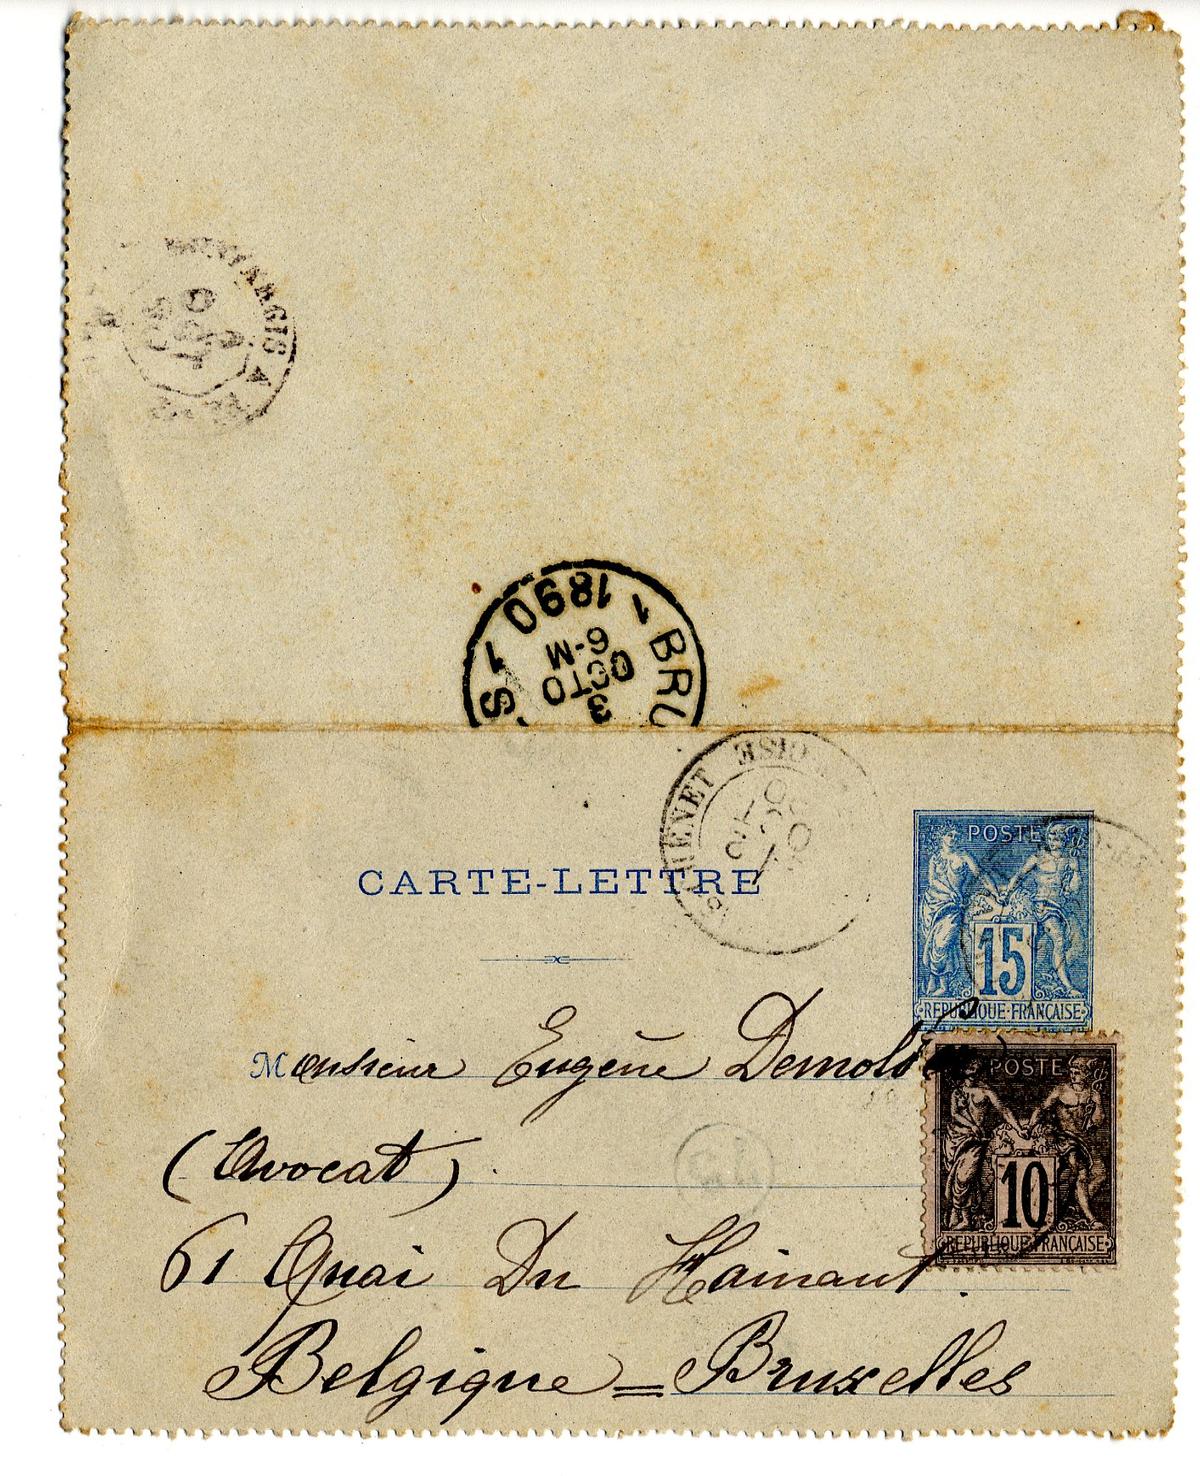 MONTARGIS A
1 BRU S 1
3
OCTO
6-M
1890
OISE
CARTE-LETTRE
POSTE
15
REPUBLIQUE FRANÇAISE
Monsieur Eugène Demolder
(Avocat)
POSTE
10
REPUBLIQUE FRANÇAISE
61 Quai Du Hainaut.
Belgique = Bruxelles